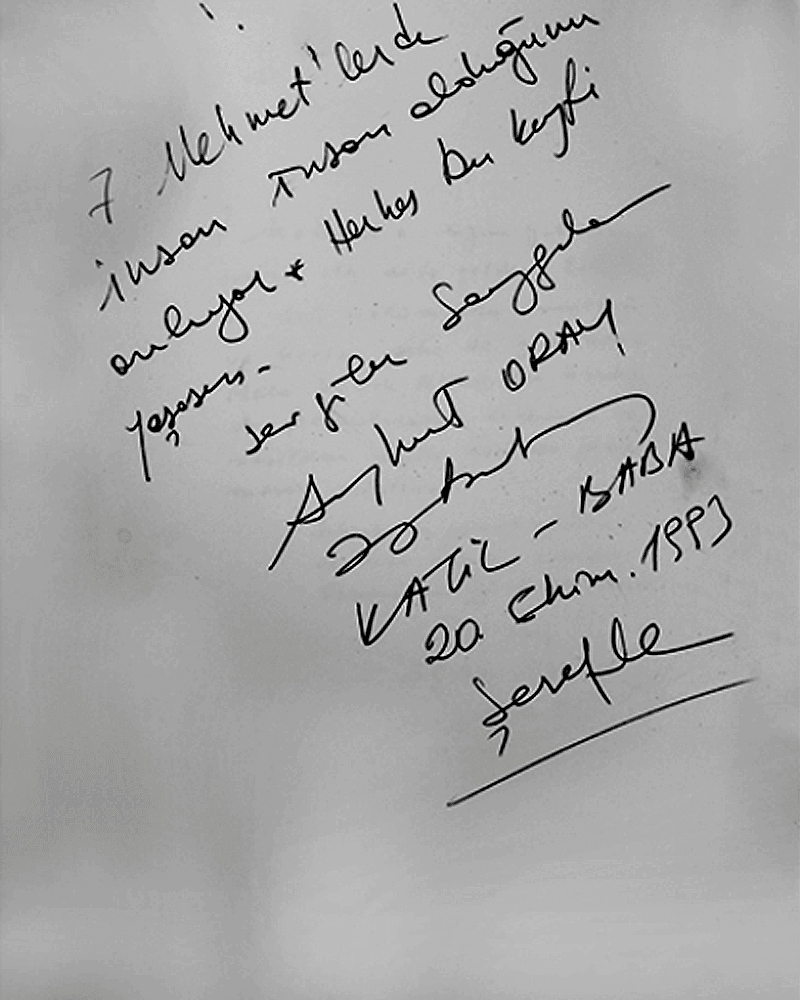 7 Mehmet'lerde
insan insan olduğunu
anlıyor * Herkes bu keyfi
yaşasın -
sevgiler saygılar
Aykut ORAY
KATİL - BABA
20 Ekim. 1993
Şerefle